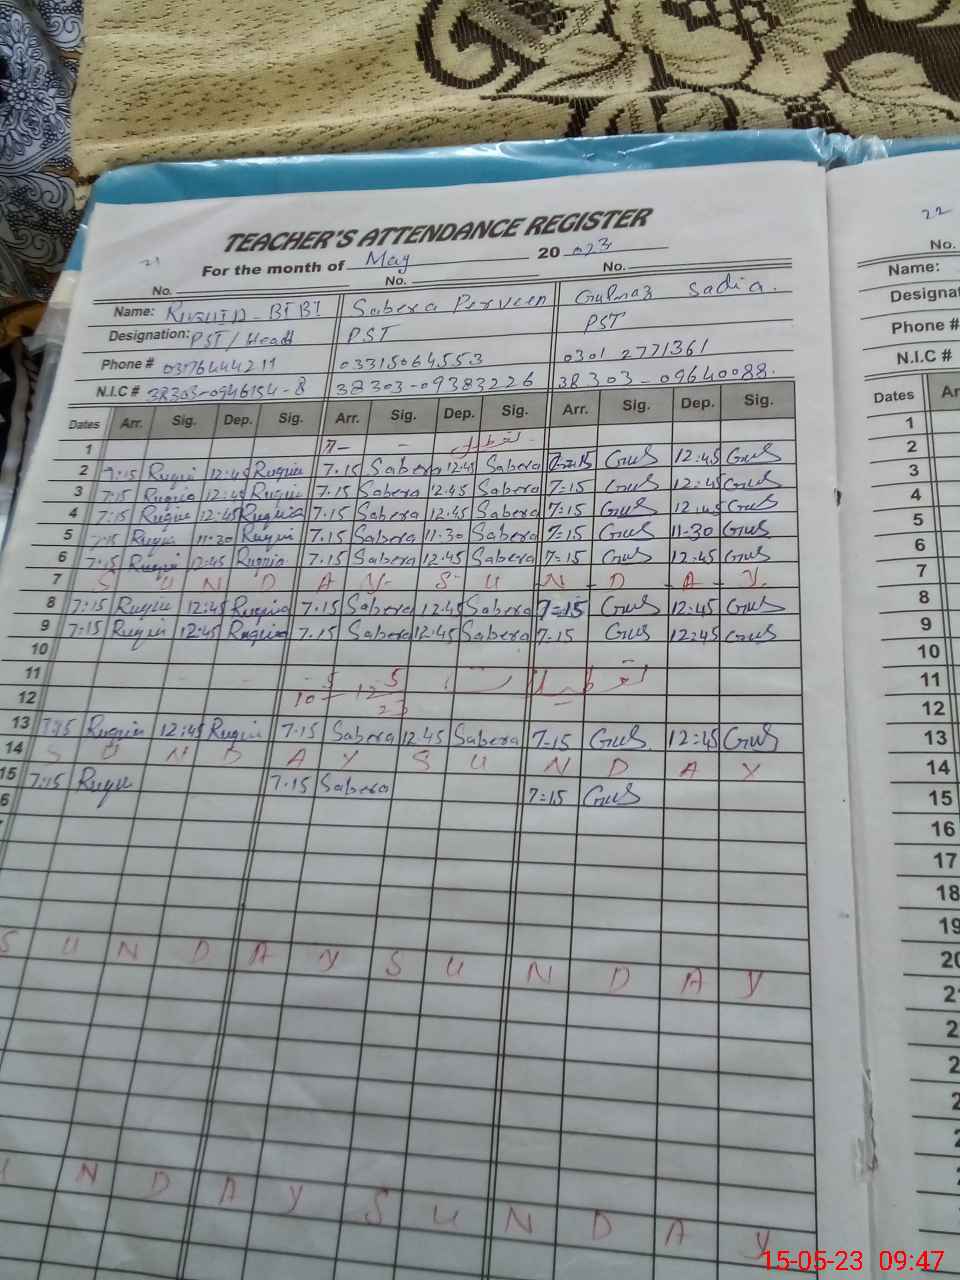 21
TEACHER'S ATTENDANCE REGISTER
For the month of May 2023
No. No. No.
Name: BIBI Sabera Perveen Gulnaz Sadia.
Designation: PST/Head PST PST
Phone # 03176444211 03315064553 0301 2771361
N.I.C # 38303-0946154-8 38303-09383226 38303-09640088.
Dates Arr. Sig. Dep. Sig. Arr. Sig. Dep. Sig. Arr. Sig. Dep. Sig.
1 تعطیل
2 7:15 Ruqui 12:45 Ruquia 7.15 Sabera 12.45 Sabera 7=15 Gus 12:45 Gus
3 7:15 Ruqia 12:45 Ruquia 7.15 Sabera 12.45 Sabera 7=15 Gus 12:45 Gus
4 7:15 Ruquie 12:45 Ruquia 7.15 Sabera 12.45 Sabera 7=15 Gus 12:45 Gus
5 7:15 Ruqui 11:30 Ruqui 7.15 Sabera 11.30 Sabera 7=15 Gus 11-30 Gus
6 7:15 Ruqui 12:45 Ruqnia 7.15 Sabera 12.45 Sabera 7=15 Gus 12.45 Gus
7 S U N D A Y S U N D A Y
8 7:15 Ruqui 12:45 Ruquia 7.15 Sabera 12.45 Sabera 7=15 Gus 12:45 Gus
9 7:15 Ruqui 12:45 Ruquia 7.15 Sabera 12.45 Sabera 7-15 Gus 12:45 Gus
10
11 تعطیلات
12
13 7:15 Ruquia 12:45 Ruqui 7.15 Sabera 12.45 Sabera 7-15 Gus 12:45 Gus
14 S U N D A Y S U N D A Y
15 7:15 Ruqu 7.15 Sabera 7=15 Gus
S U N D A Y S U N D A Y
U N D A Y S U N D A Y
22
No.
Name:
Designat
Phone #
N.I.C #
Dates Ar
1
2
3
4
5
6
7
8
9
10
11
12
13
14
15
16
17
18
19
20
15-05-23 09:47